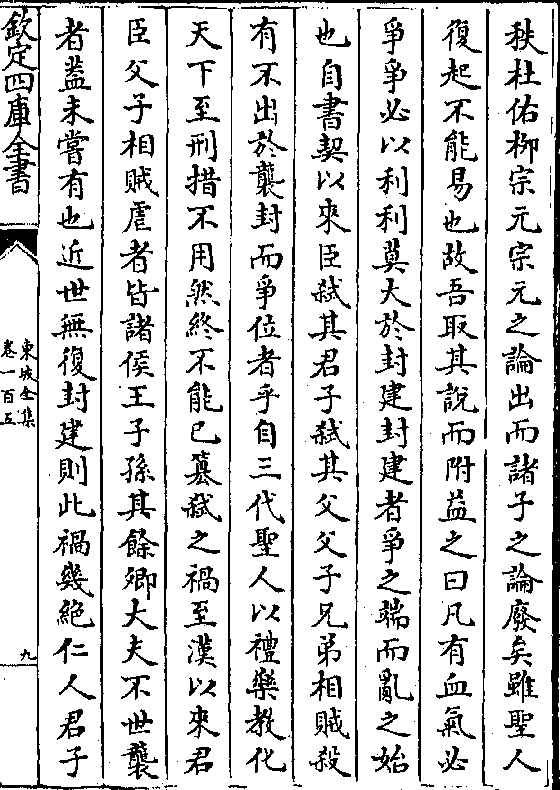 秩杜佑栁宗元宗元之論出而諸子之論廢矣雖聖人
復起不能易也故吾取其說而附益之曰凡有血氣必
爭爭必以利利莫大於封建封建者爭之端而亂之始
也自書契以來臣弑其君子弑其父父子兄弟相賊殺
有不出於襲封而爭位者乎自三代聖人以禮樂教化
天下至刑措不用然終不能已簒弑之禍至漢以來君
臣父子相賊虐者皆諸侯王子孫其餘卿大夫不世襲
者葢未嘗有也近世無復封建則此禍幾絶仁人君子
欽定四庫全書
東坡全集
卷一百五
九